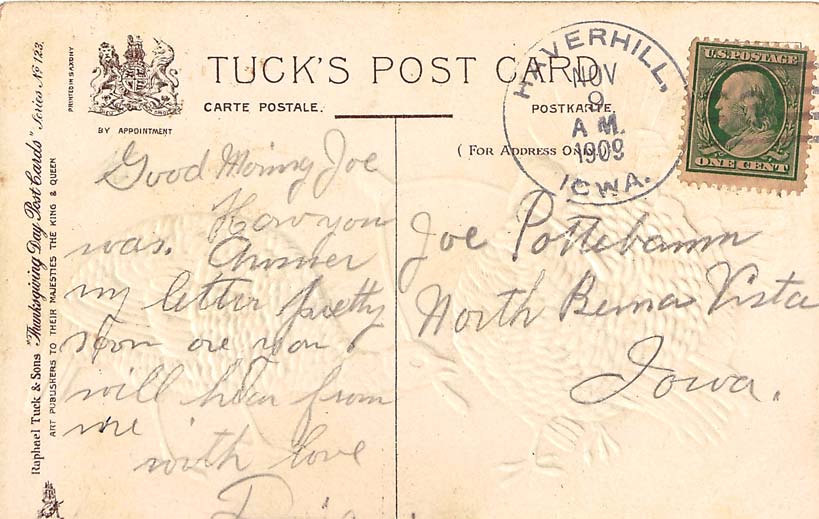 TUCK'S POST CARD
CARTE POSTALE.
POSTKARTE.
BY APPOINTMENT
( FOR ADDRESS ONLY.)
PRINTED IN SAXONY
Raphael Tuck & Sons "Thanksgiving Day Post Cards" Series No 123.
ART PUBLISHERS TO THEIR MAJESTIES THE KING & QUEEN
HAVERHILL,
NOV
9
A M.
1909
IOWA.
U.S. POSTAGE
ONE CENT
Good Morning Joe
How you
was. Answer
my letter pretty
soon ore you
will hear from
me
with love
Joe Pottebaum
North Beuna Vista
Iowa.